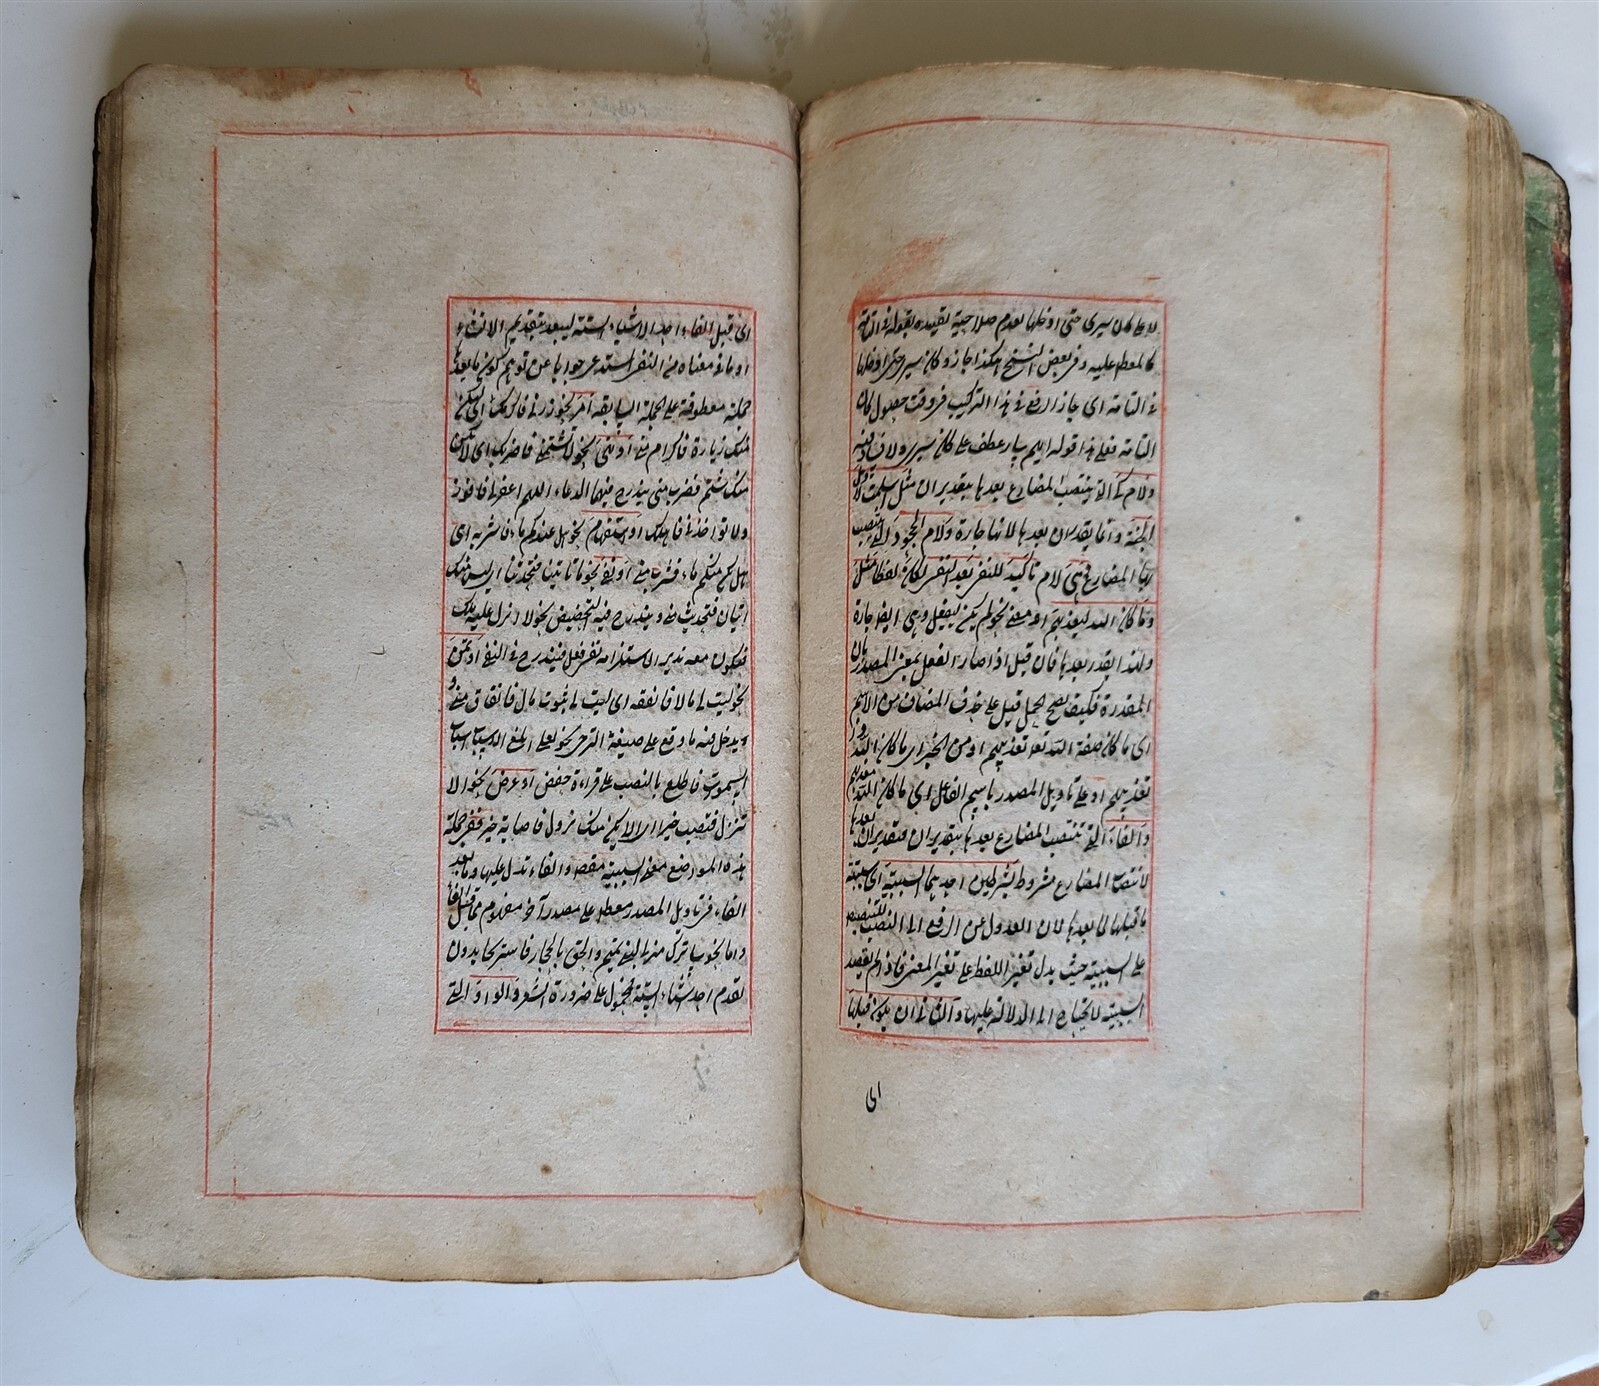 لا على كان سيرى حتى ادخلها لعدم صلاحية تقييده بقوله فى التامة
كالمعطوف عليه وفى بعض النسخ هكذا وجاز وكان سيرى حتى ادخلها
فى التامة اى جاز الرفع فى هذا التركيب فى وقت حصول كان
التامة فعلى هذا قوله ايهم سار عطف على كان سيرى ولا فساد فيه
ولام كى التى ينتصب المضارع بعدها بتقدير ان مثل اسلمت لادخل
الجنة وانما يقدر ان بعدها لانها جارة ولام الجحود التى ينتصب
بها المضارع هى لام تاكيد للنفى بعد النفى لكان لفظا مثل
وما كان الله ليعذبهم او معنى نحو لم يكن ليفعل وهى ايضا جارة
ولهذا يقدر بعدها فان قيل اذا صار الفعل بمعنى المصدر بان
المقدرة فكيف يصح الحمل قيل على حذف المضاف من الاسم
اى ما كان صفة الله تعالى تعذيبهم او من الخبر اى ما كان الله ذو
تعذيبهم او على تاويل المصدر باسم الفاعل اى ما كان الله معذبهم
والفاء التى ينتصب المضارع بعدها بتقدير ان فتقدير ان بعدها
لانتصاب المضارع مشروط بشرطين احدهما السببية اى سببية
ما قبلها لما بعدها لان العدول عن الرفع الى النصب للتنصيص
على السببية حيث يدل تغير اللفظ على تغير المعنى فاذا لم يقصد
السببية لا يحتاج الى الدلالة عليها والثانى ان يكون قبلها
اى
اى قبل الفاء احد الاشياء الستة ليبعد بتقديم الانشاء
او ما فى معناه من النفى المستدعى جوابا عن توهم كون ما بعدها
جملة معطوفة على الجملة السابقة امر نحو زرنى فاكرمك اى ليكن
منك زيارة فاكرام منى او نهى نحو لا تشتمنى فاضربك اى لا يكن
منك شتم فضرب منى ويندرج فيهما الدعاء اللهم اغفر لى فافوز
ولا تواخذنى فاهلك او استفهام نحو هل عندكم ماء فاشربه اى
هل يكن منكم ماء فشرب منى او نفى نحو ما تاتينا فتحدثنا اى ليس منك
اتيان فتحديث منى ويندرج فيه التحضيض نحو لولا انزل عليه ملك
فيكون معه نذيرا لاستلزامه نفى فعل فيندرج فى النفى او تمن
نحو ليت لى مالا فانفقه اى ليت لى ثبوت مال فانفاق منى و
يدخل فيه ما وقع على صيغة الترجى نحو لعلى ابلغ الاسباب اسباب
السموات فاطلع بالنصب على قراءة حفص او عرض نحو الا
تنزل فتصيب خيرا اى الا يكن منك نزول فاصابة خير ففى جملة
هذه المواضع معنى السببية مقصود والفاء تدل عليها وما بعد
الفاء فى تاويل المصدر معطوف على مصدر آخر مفهوم مما قبل الفاء
واما نحو ساترك منزلى لبنى تميم والحق بالحجاز فاستريحا بدون
تقدم احد الاشياء الستة فمحمول على ضرورة الشعر والواو التى